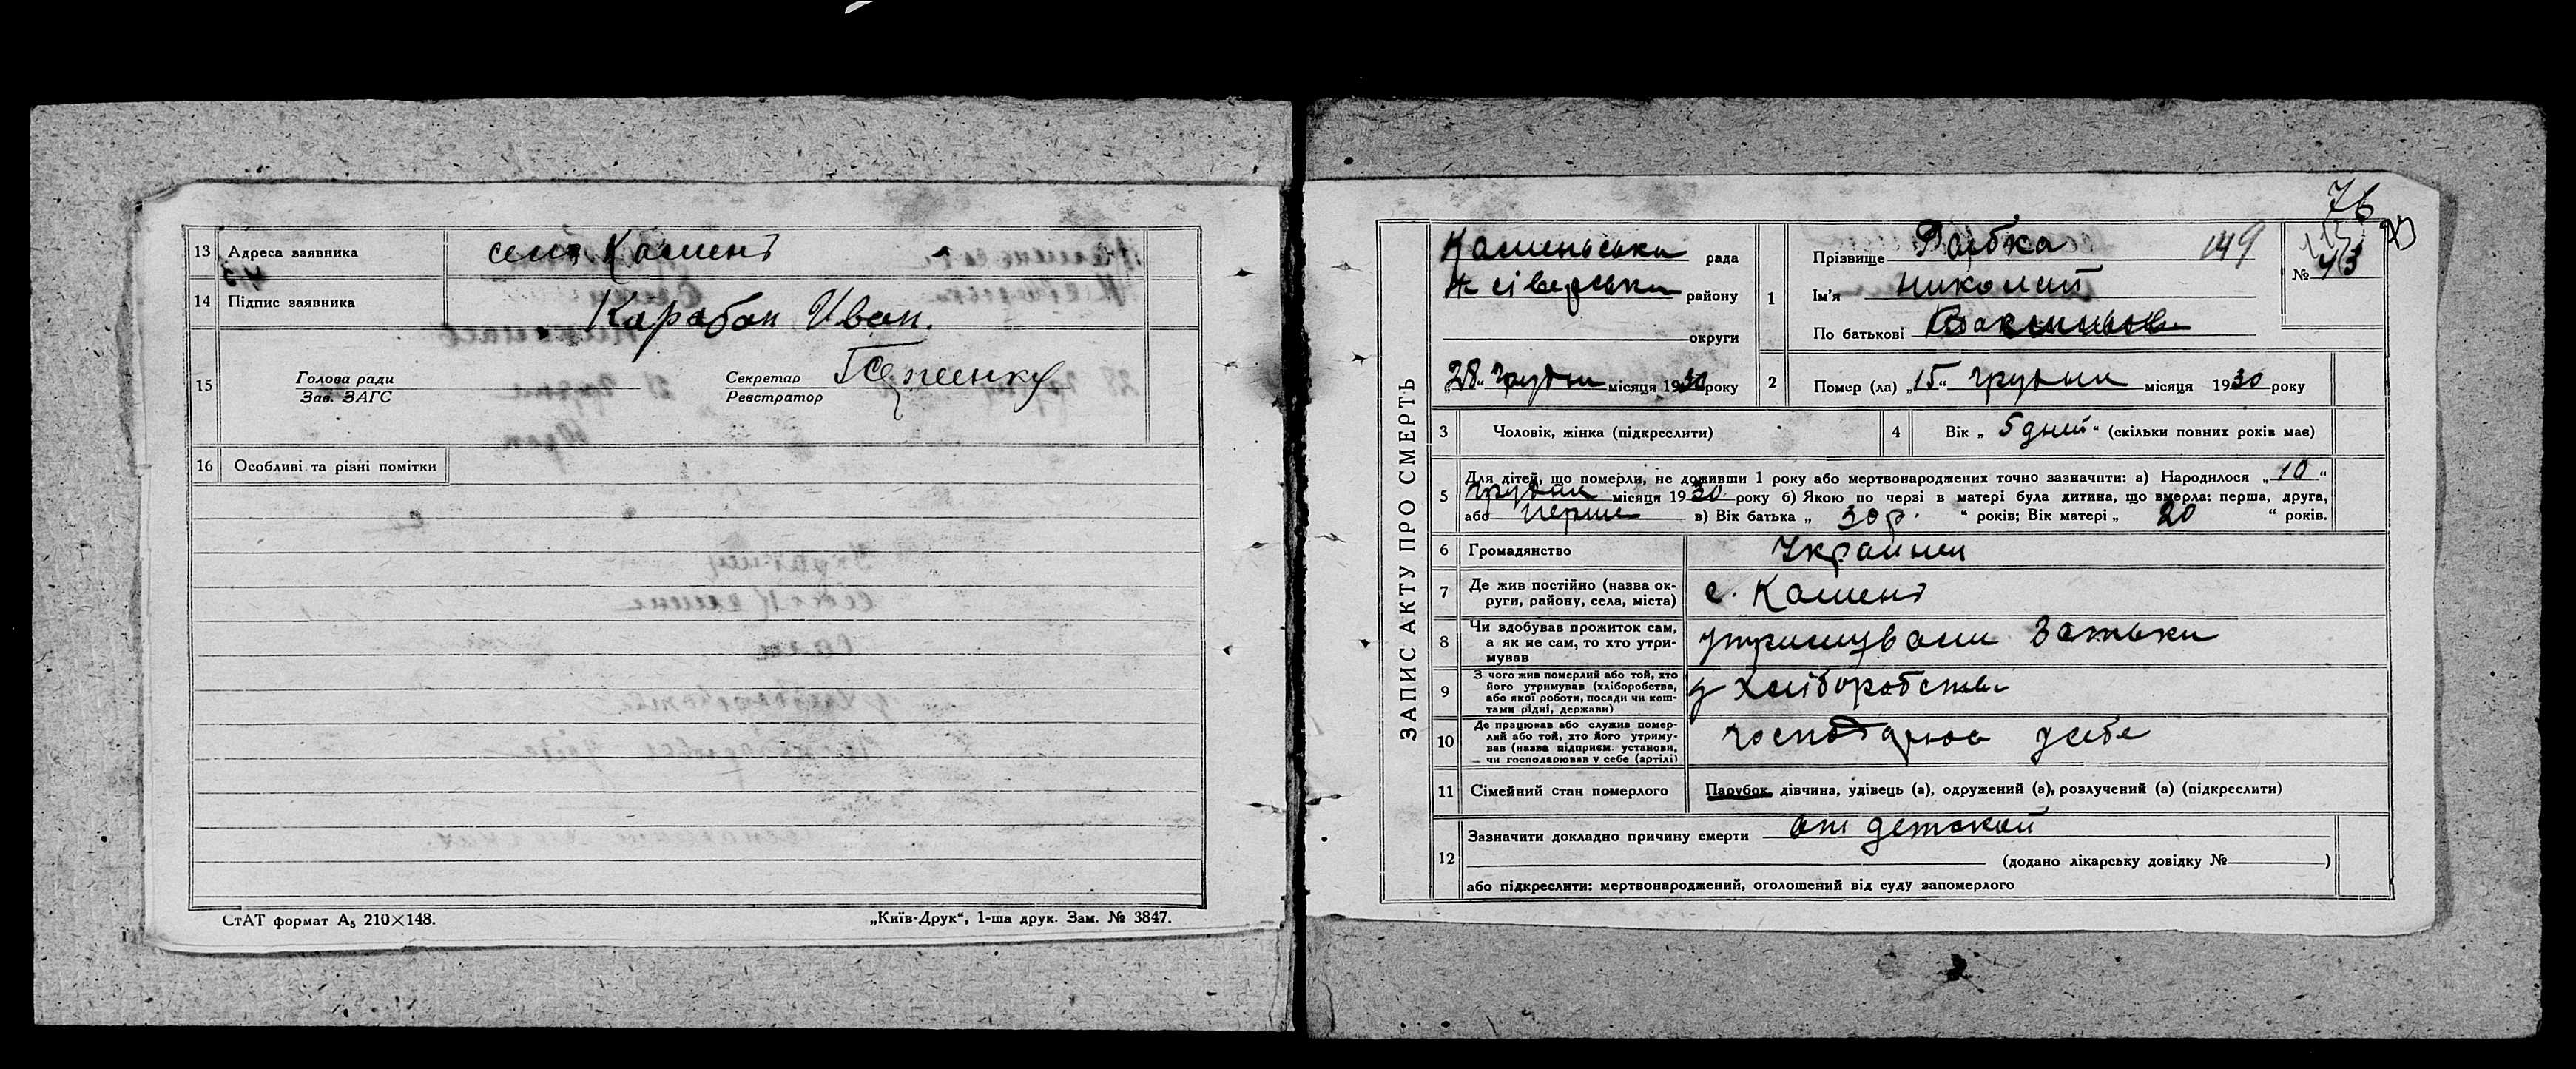 13 Адреса заявника село Камень
14 Підпис заявника Карабан Иван.
15 Голова ради
Зав. ЗАГС
Секретар
Реєстратор
16 Особливі та різні помітки
СтАТ формат А5 210×148.
„Київ-Друк“, 1-ша друк. Зам. № 3847.
76
ЗАПИС АКТУ ПРО СМЕРТЬ
Каменьська рада
Н сіверськи району
округи
„28“ грудня місяця 1930 року
1 Прізвище Рабка 149
Ім'я Николай
По батькові
№ 43
2 Помер (ла) „15“ грудня місяця 1930 року
3 Чоловік, жінка (підкреслити)
4 Вік „ 5 дней “ (скільки повних років має)
5 Для дітей, що померли, не доживши 1 року або мертвонароджених точно зазначити: а) Народилося „10“
грудня місяця 1930 року б) Якою по черзі в матері була дитина, що вмерла: перша, друга,
або перша в) Вік батька „ 30 р. “ років; Вік матері „ 20 “ років.
6 Громадянство Украйнец
7 Де жив постійно (назва округи, району, села, міста) с. Камень
8 Чи вдобував прожиток сам, а як не сам, то хто утримував утримували батьки
9 З чого жив померлий або той, хто його утримував (хліборобства, або якої роботи, посади чи коштами рідні, держави) з хліборобства
10 Де працював або служив померлий або той, хто його утримував (назва підприєм. установи, чи господарював у себе (артілі) господарював у себе
11 Сімейний стан померлого Парубок, дівчина, удівець (а), одружений (а), розлучений (а) (підкреслити)
12 Зазначити докладно причину смерти от детской
(додано лікарську довідку № )
або підкреслити: мертвонароджений, оголошений від суду запомерлого